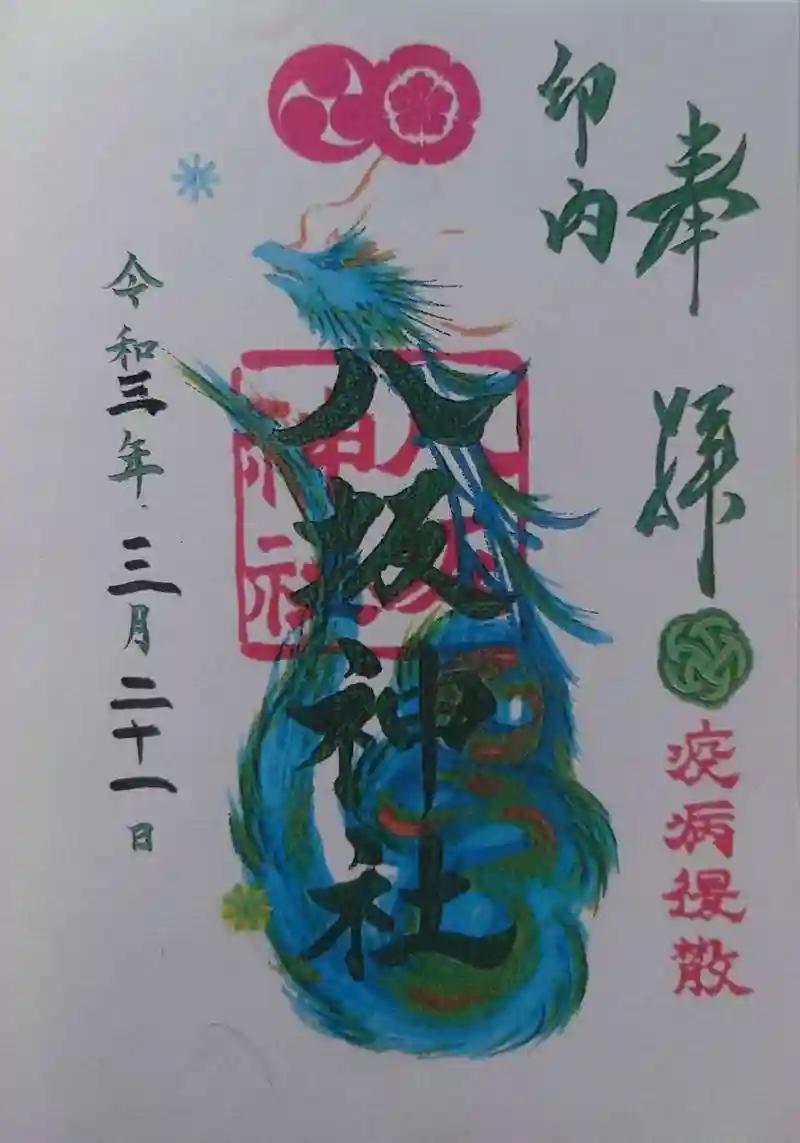 奉拝
疫病退散
印内
八坂神社
八坂神社
令和三年三月二十一日